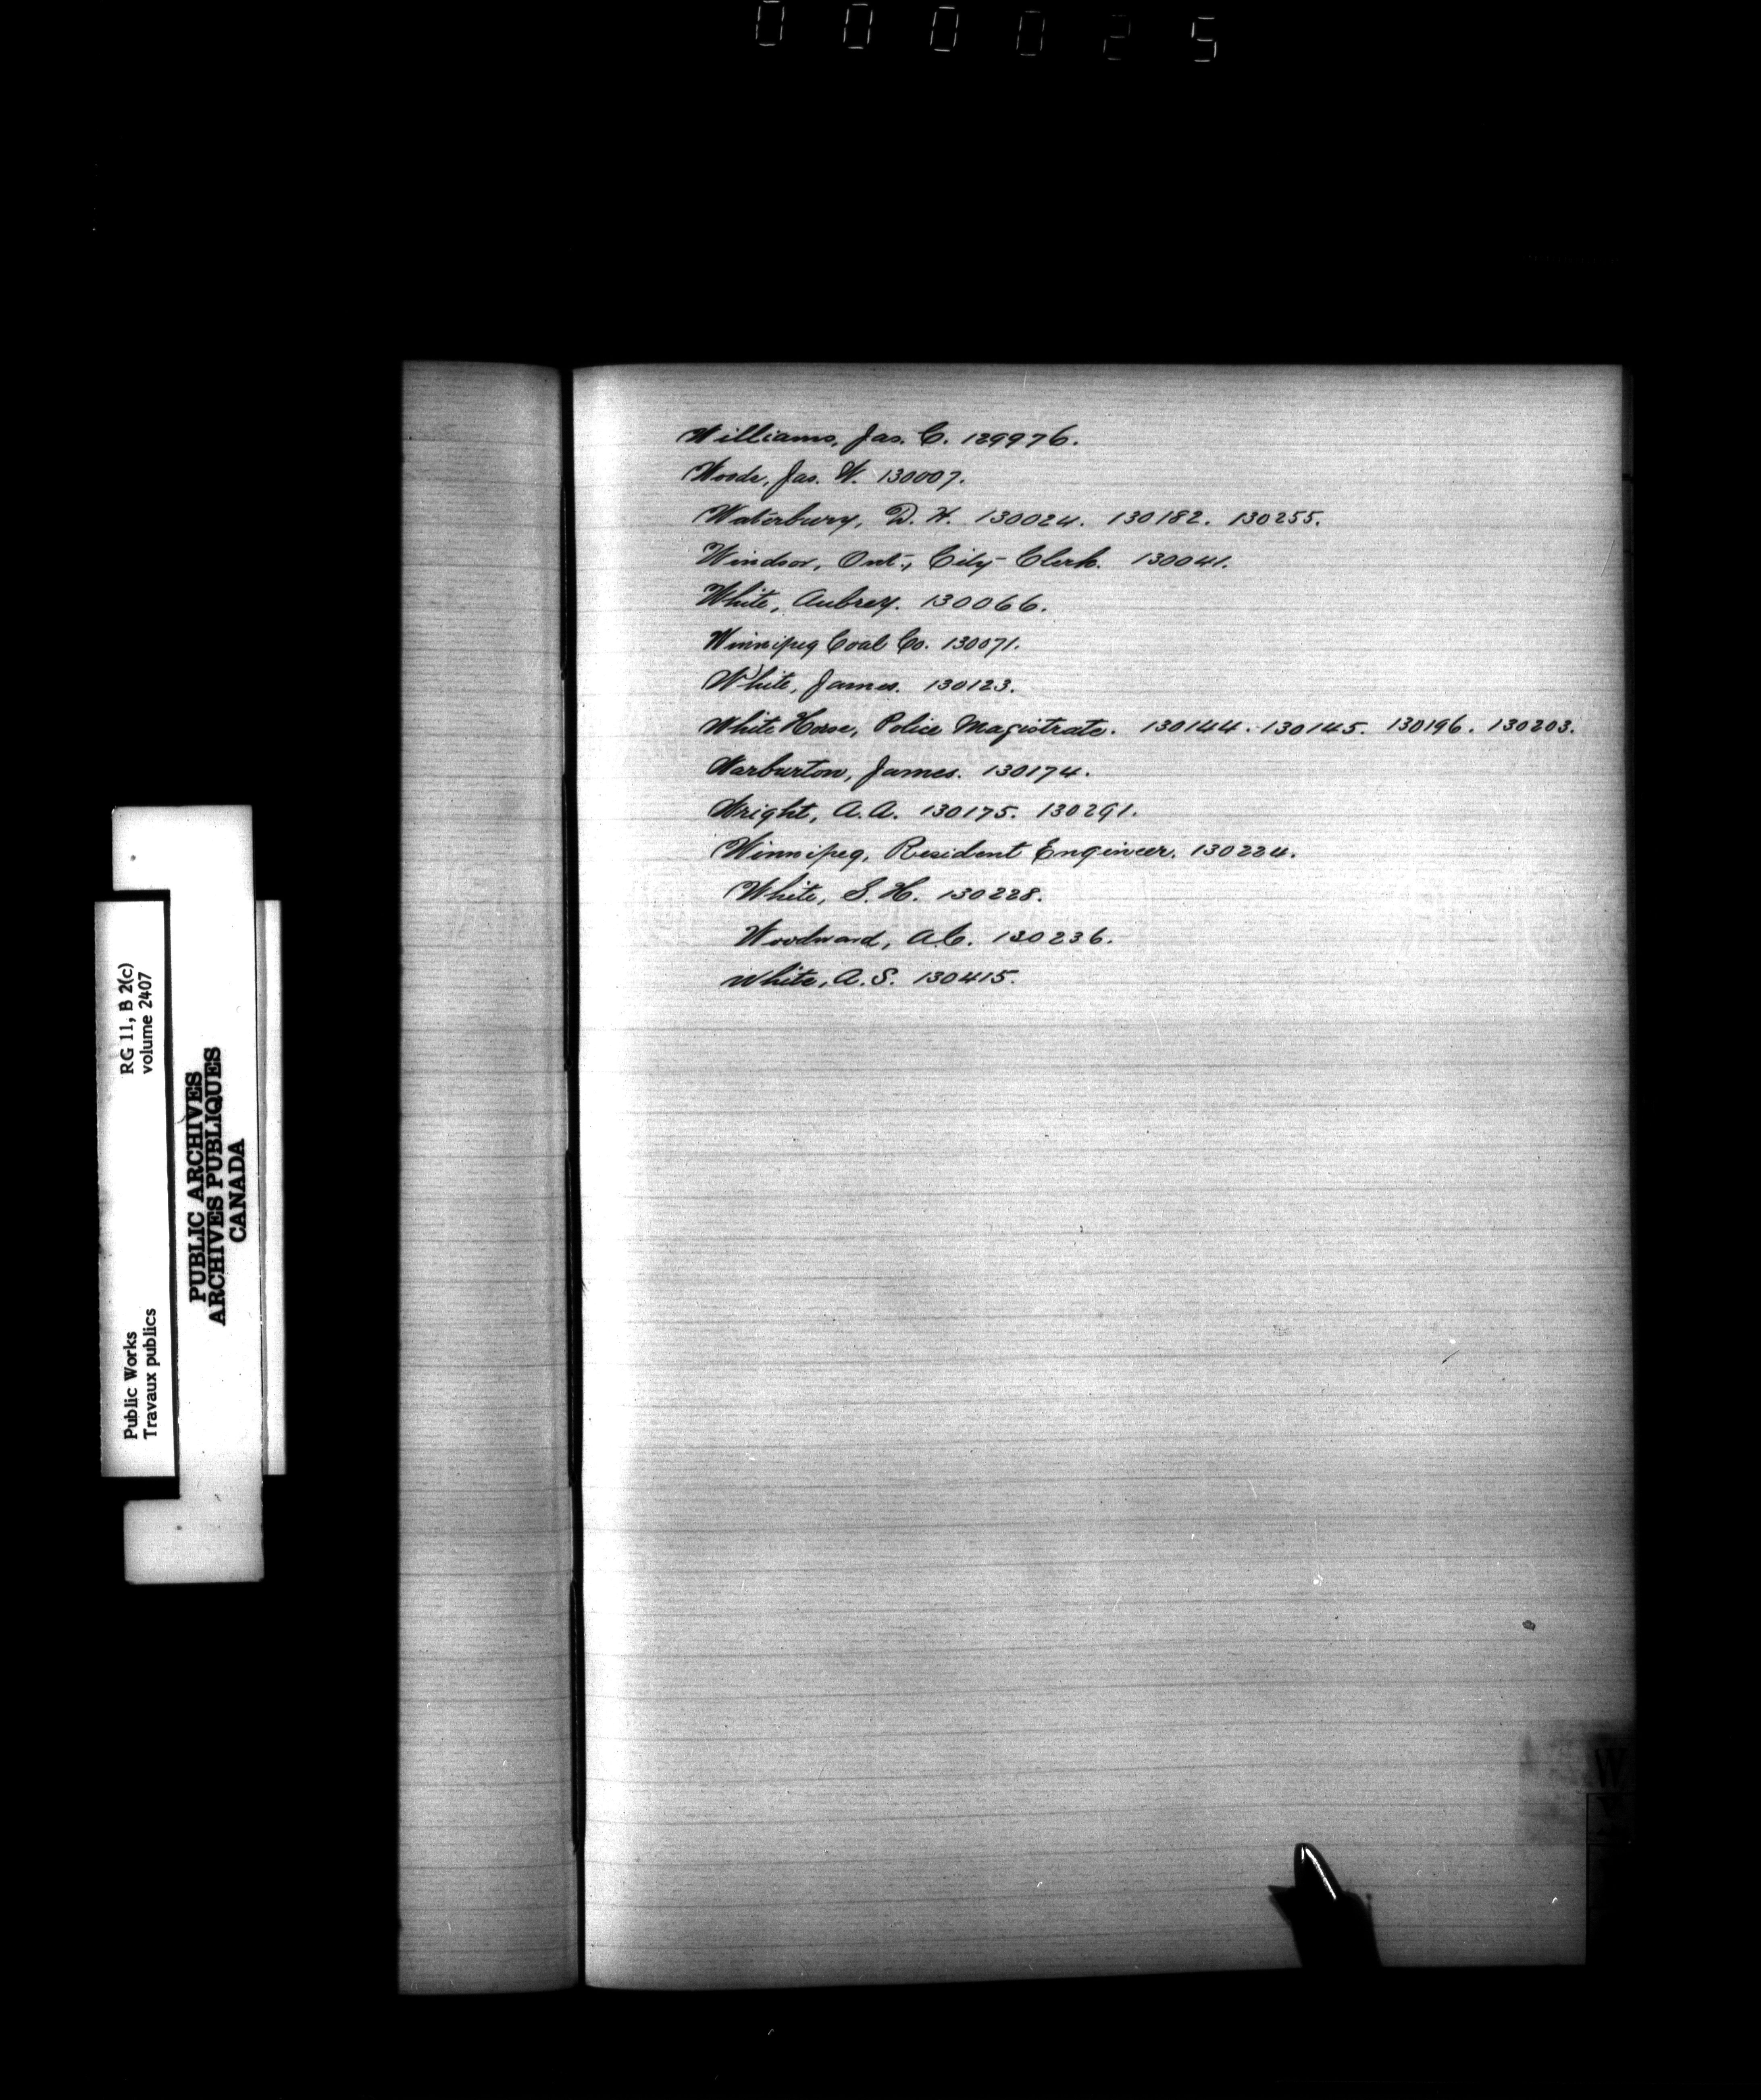 000025
Williams, Jas. C. 129976.
Woods, Jas. W. 130007.
Waterbury, D. H. 130024. 130182. 130255.
Windsor, Ont., City Clerk. 130041.
White, Aubrey. 130066.
Winnipeg Coal Co. 130071.
White, James. 130123.
White Horse, Police Magistrate. 130144. 130145. 130196. 130203.
Warburton, James. 130174.
Wright, A.A. 130175. 130291.
Winnipeg, Resident Engineer. 130224.
White, S. H. 130228.
Woodward, A.C. 130236.
White, A. S. 130415.
W
RG 11, B 2(c)
volume 2407
Public Works
Travaux publics
PUBLIC ARCHIVES
ARCHIVES PUBLIQUES
CANADA